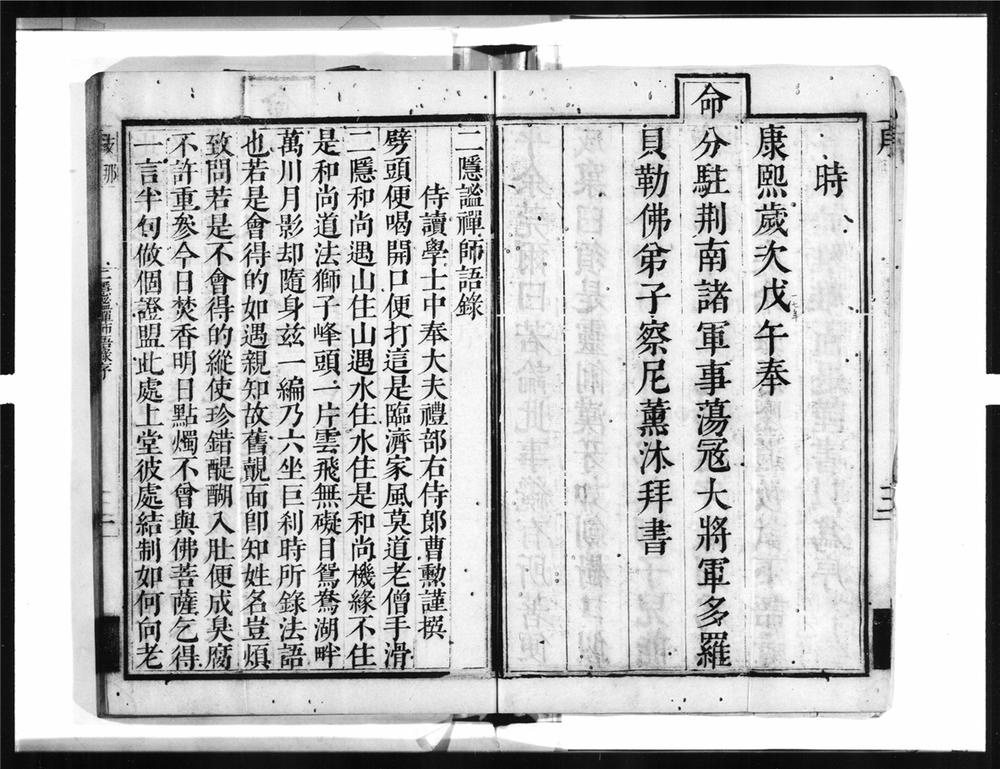 時
康熙歲次戊午奉
命分駐荆南諸軍事蕩冦大將軍多羅
貝勒佛弟子察尼薰沐拜書
二隱謐禪師語錄
侍讀學士中奉大夫禮部右侍郎曹勳謹撰
劈頭便喝開口便打這是臨濟家風莫道老僧手滑
二隱和尚遇山住山遇水住水住是和尚機緣不住
是和尚道法獅子峰頭一片雲飛無礙目鴛鴦湖畔
萬川月影却隨身兹一編乃六坐巨刹時所錄法語
也若是會得的如遇親知故舊覿面卽知姓名豈煩
致問若是不會得的縱使珍錯醍醐入肚便成臭腐
不許重叅今日焚香明日點燭不曾與佛菩薩乞得
一言半句做個證盟此處上堂彼處結制如何向老
二隱謐禪師語錄序